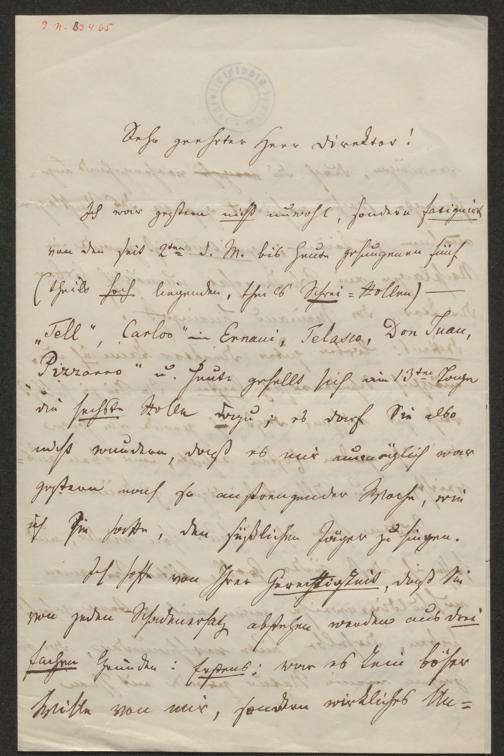 I. N. 33465
Sehr geehrter Herr Direktor!
Ich war gestern nicht unwohl, sondern fatiguirt
von den seit 2ten d. M. bis heute gesungenen fünf
(theils hoch liegenden, theils Schrei=Rollen) —
„Tell“, „Carlos“ in Ernani, Telasco, Don Juan,
Pizzarro“ u. heute gesellt sich am 13ten Tage
die sechste Rolle dazu; es darf Sie also
nicht wundern, daß es mir unmöglich war
gestern nach so anstrengender Woche, wie
ich Sie hatte, den Jäger zu singen.
Ich hoffe von Ihrer Gerechtigkeit, daß Sie
von jeden Schadenersatz abstehen werden aus drei
fachen Gründen: Erstens: war es kein böser
Wille von mir, sondern wirkliches Un=